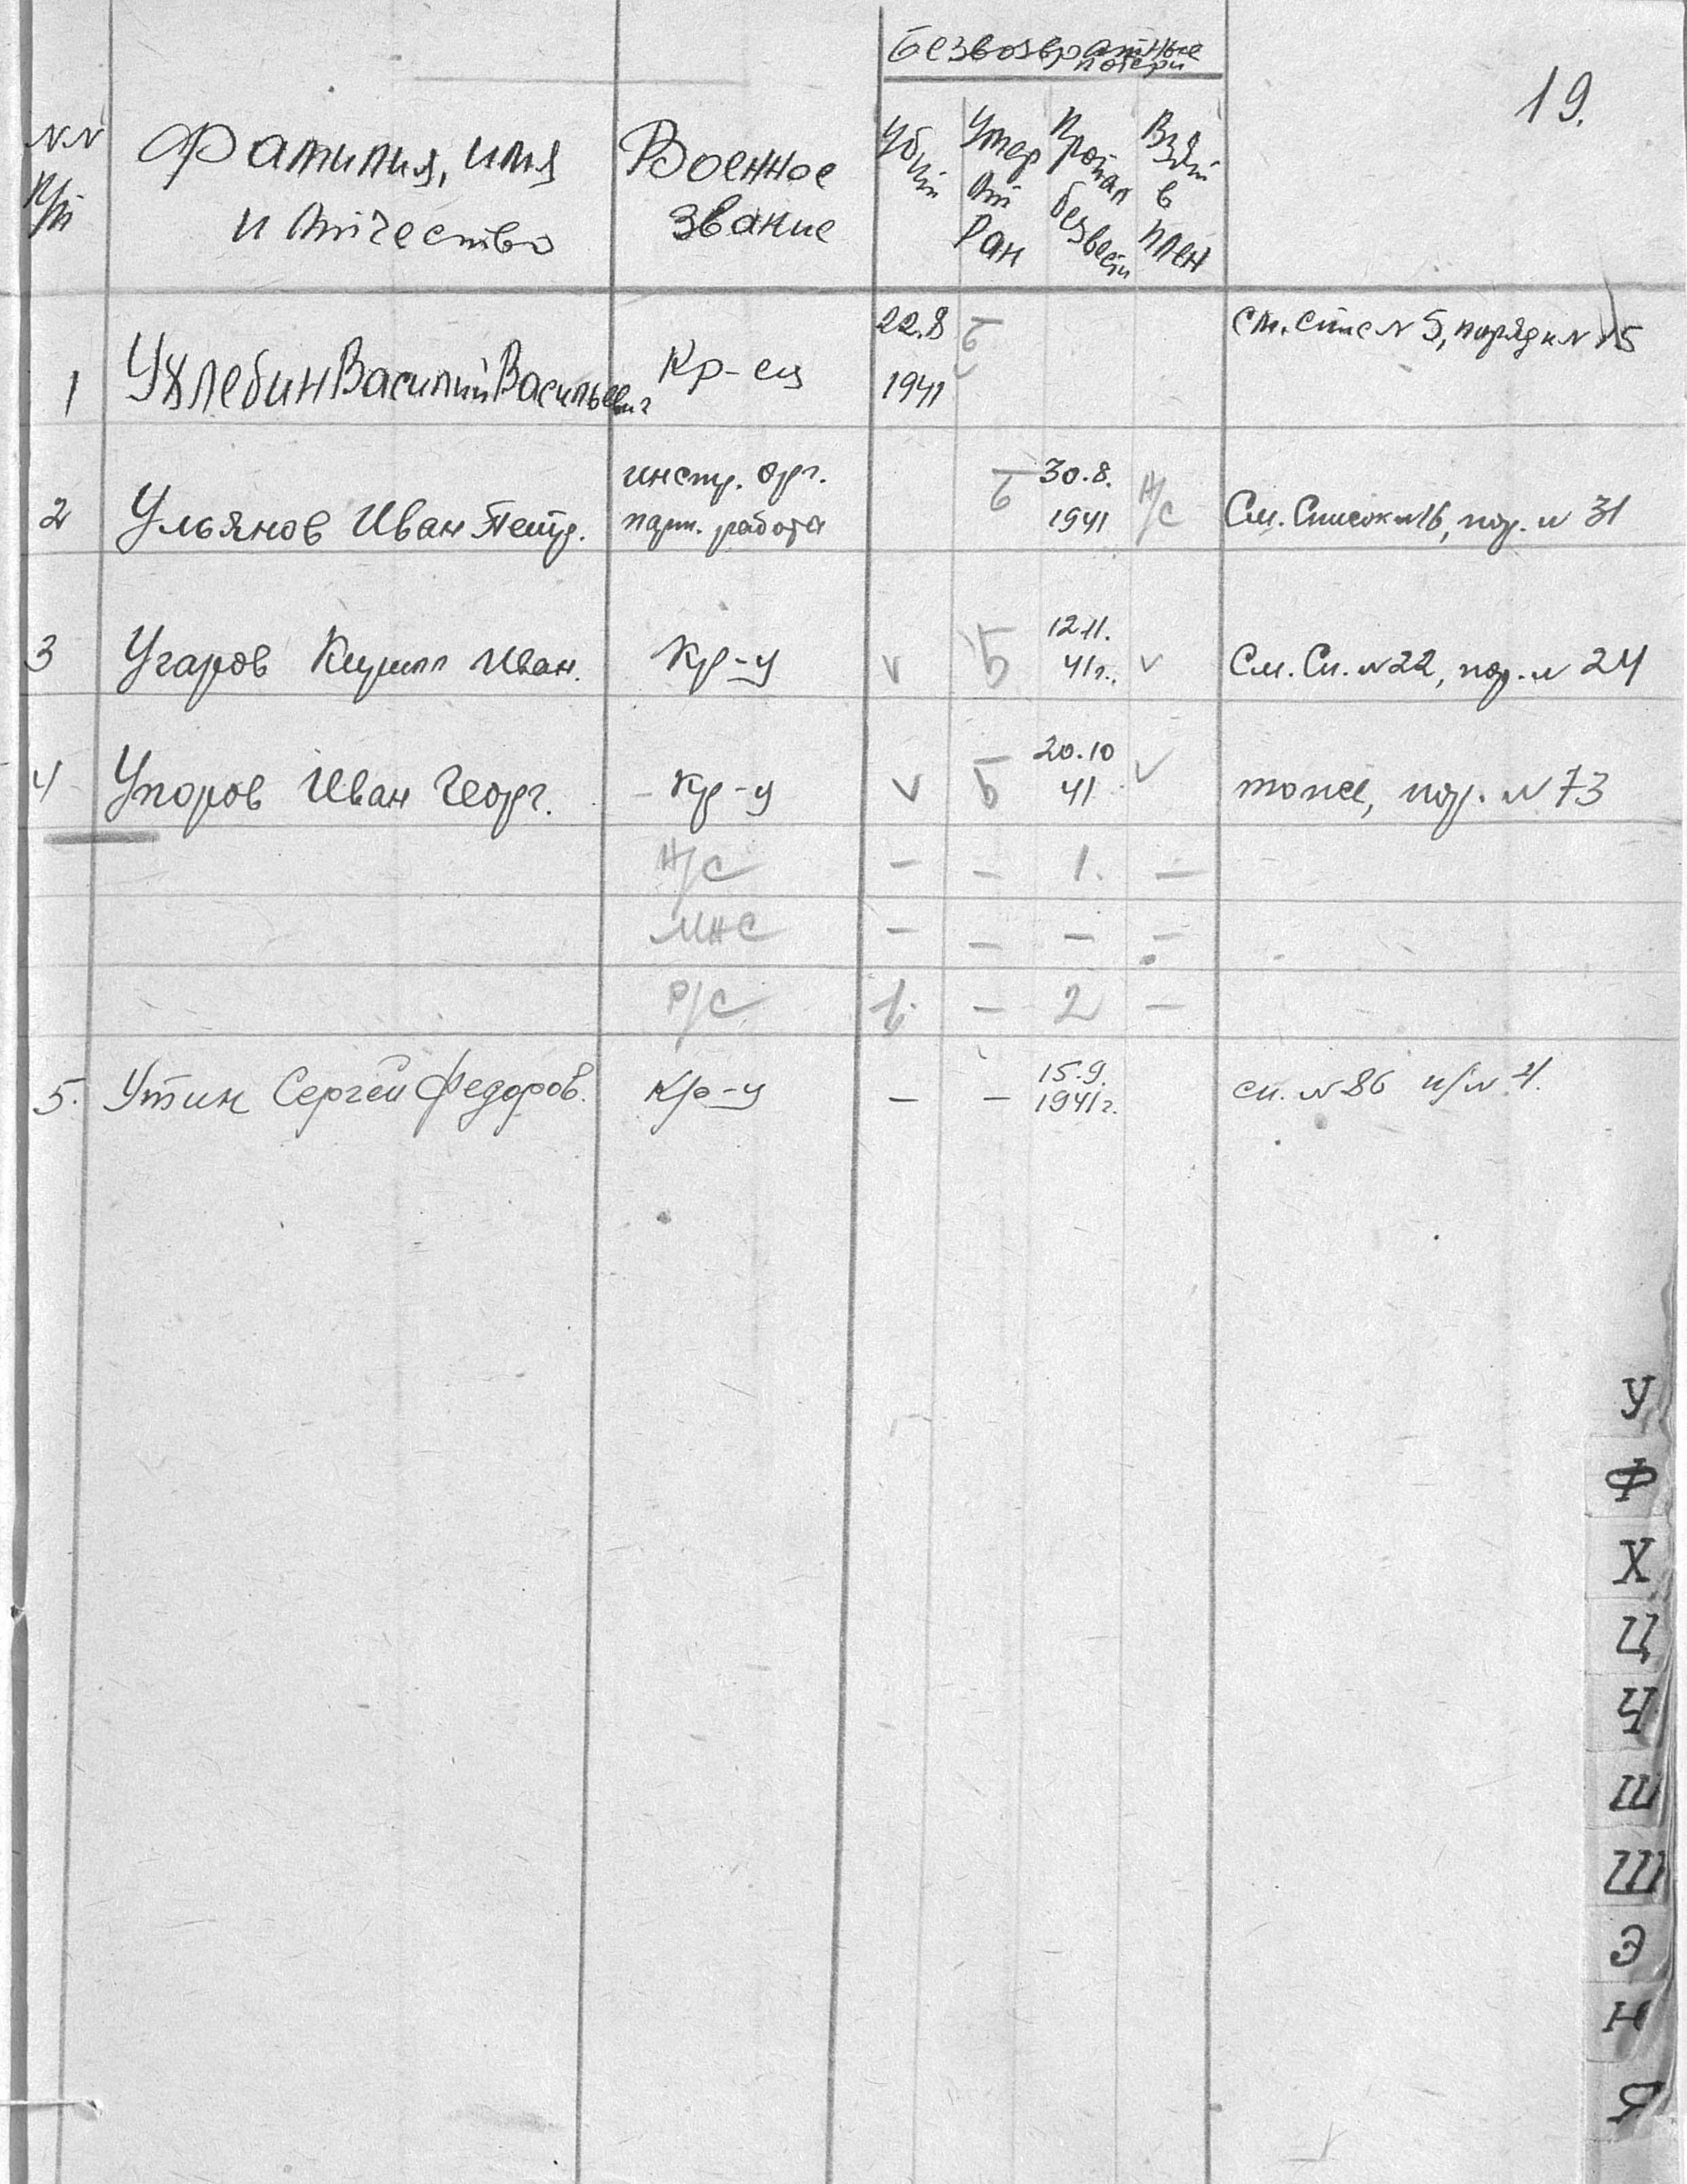 19.
Безвозвратные
потери
NN
п/п
Фамилия, имя
и отчество
Военное
звание
Убит
Умер
от
ран
Пропал
без
вести
Взят
в
плен
1 Ухлебин Василий Васильевич Кр-ец 22.8 1941 Б см. спис N 5, порядк N 15
2 Ульянов Иван Петр. инстр. орг.
парт. работа Б 30.8.
1941 Н/С См. Список N 16, пор. N 31
3 Угаров Кирилл Иван. Кр-ц v Б 12.11.
41г. v См. Сп. N 22, пор. N 24
4 Упоров Иван Георг. - Кр-ц v Б 20.10
41 v тоже, пор. N 73
Н/С - - 1. -
МНС - - - -
Р/С 1. - 2 -
5. Утин Сергей Федоров. Кр-ц - - 15.9.
1941г. сп. N 86 п/N 4.
У
Ф
Х
Ц
Ч
Ш
Э
Я